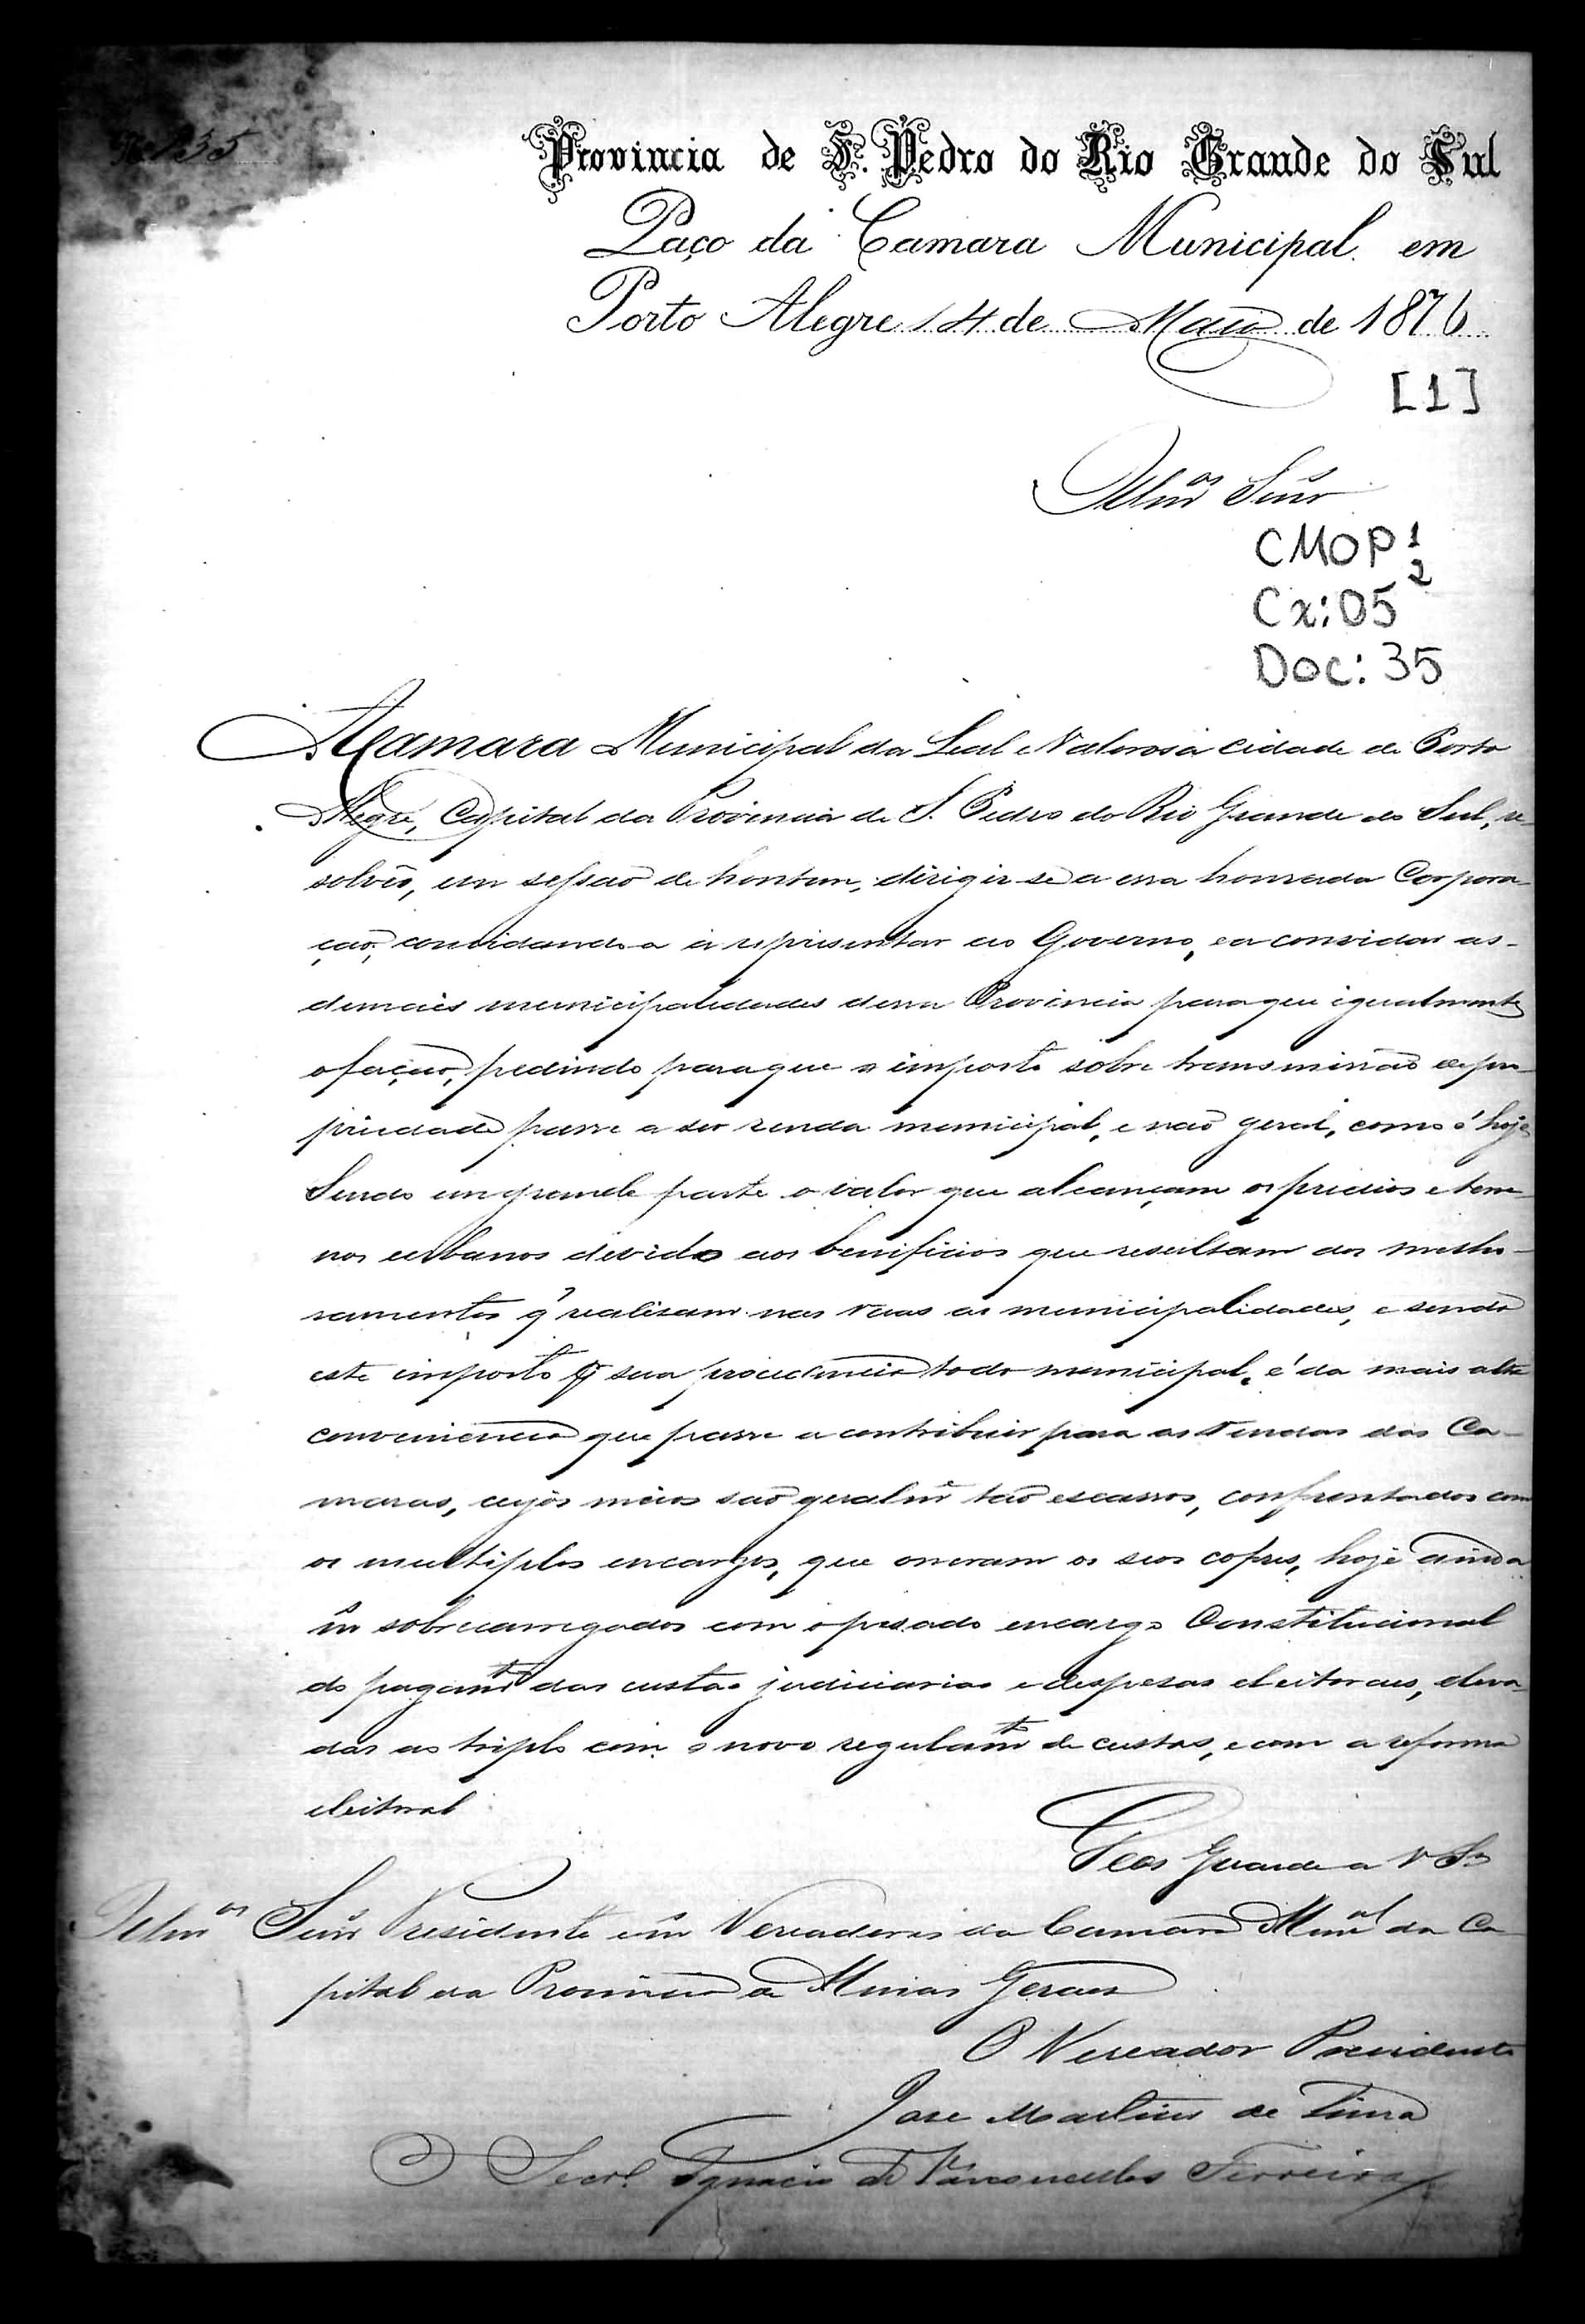 Nº 135
Provincia de S. Pedro do Rio Grande do Sul
Paço da Camara Municipal em
Porto Alegre 14 de Maio de 1876
[1]
Illmos Snrs
CMOP 1
2
Cx: 05
Doc: 35
A Camara Municipal da Leal e Valorosa cidade de Porto
Alegre, Capital da Provincia de S. Pedro do Rio Grande do Sul, re-
solvêo, em sessão de hontem, dirigir-se a essa honrada Corpora-
ção, convidando-a a representar ao Governo, e a convidar as-
demais municipalidades dessa Provincia para que igualmente
o fação, pedindo para que o imposto sobre transmissão de pro-
priedade passe a ser renda municipal, e não geral, como é hoje
Sendo em grande parte o valor que alcançam os predios e terre-
nos urbanos devido aos beneficios que resultam dos melho-
ramentos q' realisam nas ruas as municipalidades, e sendo
este imposto sua procedencia todo municipal, é da mais alta
conveniencia que passe a contribuir para as rendas das Ca-
maras, cujos meios são geralme tão escassos, confrontados com
os multiplos encargos, que oneram os seos cofres, hoje ainda
sobrecarregados com o pesado encargo Constitucional
do pagamto das custas judiciarias e despesas eleitoraes, eleva-
das ao triplo com o novo regulamto de custas, e com a reforma
eleitoral
Deos Guarde a V Sas
Illmos Snrs Presidente e Vereadores da Camara Mual da Ca-
pital da Provincia de Minas Geraes
O Vereador Presidente
Jose Martins de Lima
O Secro Ignacio de Vasconcellos Ferreira